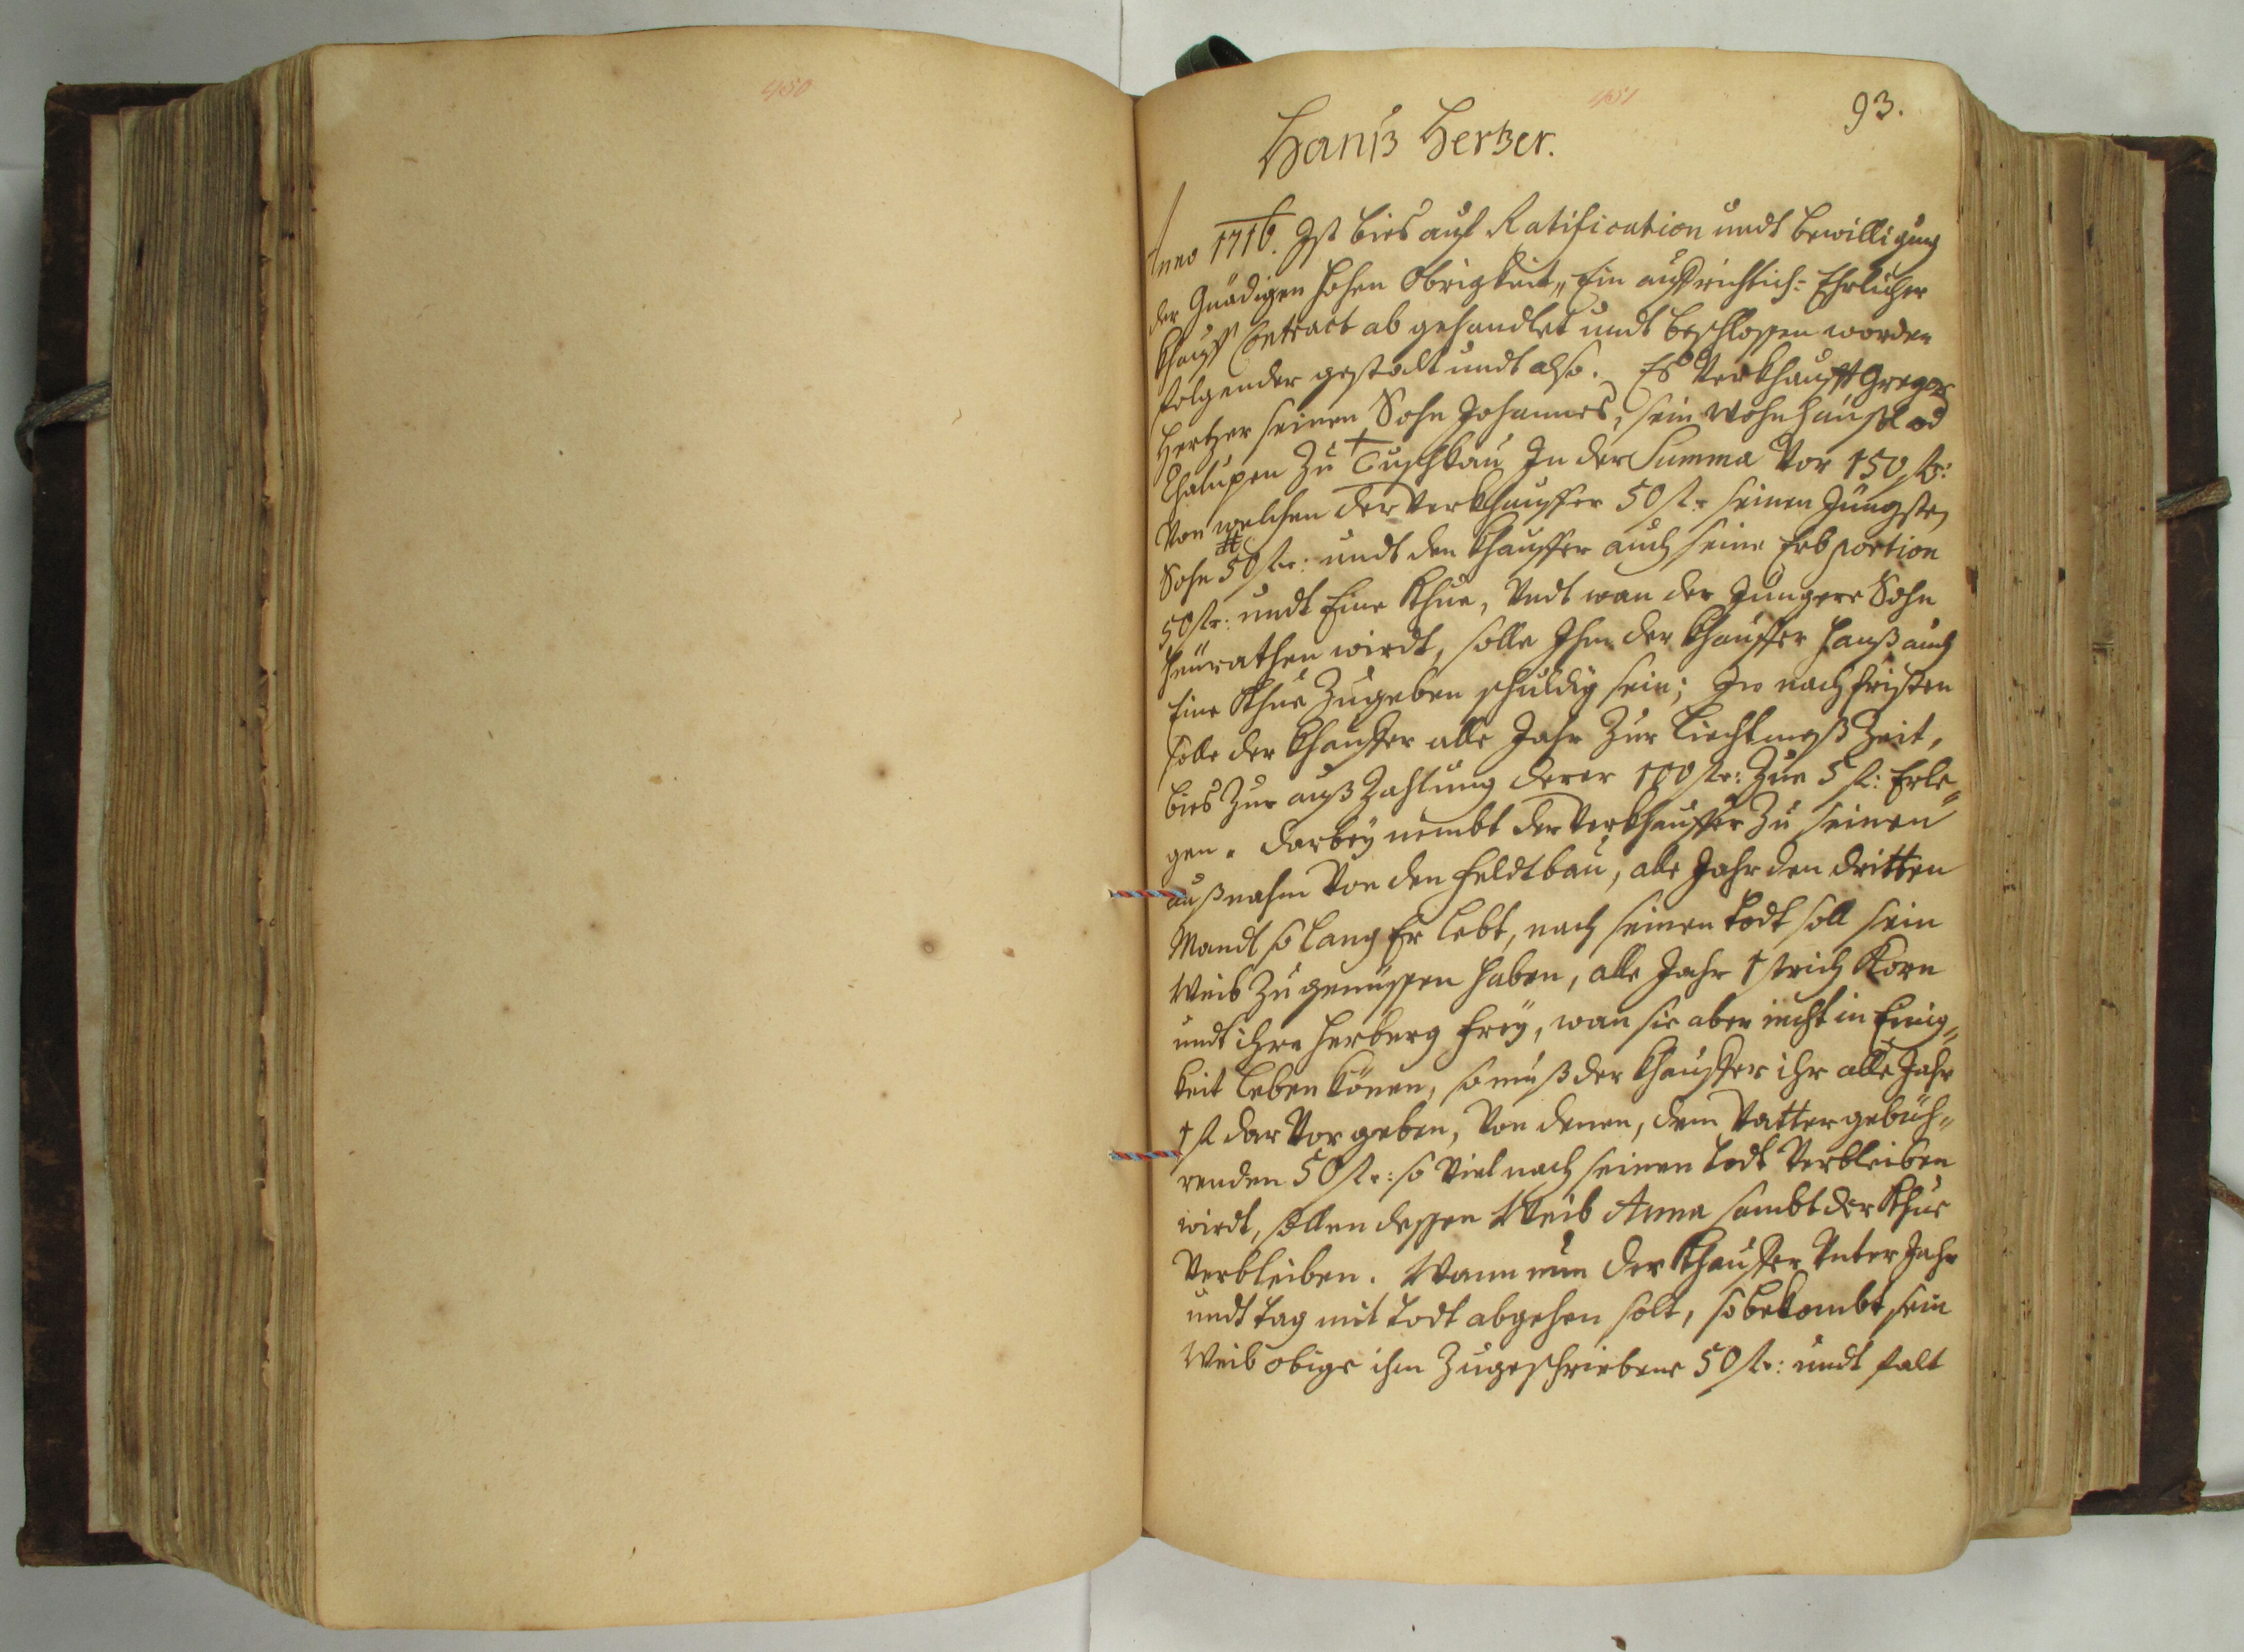 450
451
93.
Hanß Hertzer.
Anno 1716. Ist bies auf Ratification undt bewilligung
der Gnädigen hohen Obrigkeit, Ein auffrichtich: Ehrlicher
Khauff Contract ab gehandlet undt beschlossen worden
folgender gestalt undt also. Es Verkhaufft Gregor
Hertzer seinen Sohn Johannes, sein wohn häußl od
Chalupen Zu Tuschkau In der Summa Vor 150 fl:
Von welchen der Verkhauffer 50 fl: seinen Jüngsten
Sohn 50 fl: undt den Khauffer auch seine Erb portion
50 fl: undt Eine Khue, Undt wan der Jüngere Sohn
heürathen wirdt, solle Ihm der Khauffer Hanß auch
Eine Khue Zugeben schuldig sein; In nach fristen
solle der Khauffer alle Jahr Zur Liechtmeß Zeit,
bies Zur auß Zahlung derer 100 fl: Zue 5 fl: Erle„
gen. darbey nimbt der Verkhauffer Zu seinen
außnahm Von den feldtbau, alle Jahr den dritten
Mandl so lang Er lebt, nach seinen todt soll sein
Weib Zu genüssen haben, alle Jahr 1 strich Korn
undt ihre herberg frey, wan sie aber nicht in Einig„
keit leben könen, so muß der Khauffer ihr alle Jahr
1 fl dar Vor geben, Von denen, dem Vatter gebüh„
renden 50 fl: so Viel nach seinen todt Verbleiben
wirdt, sollen dessen Weib Anna sambt der Khue
Verbleiben. Wann nun der Khauffer Unter Jahr
undt tag mit todt abgehen solt, so bekombt sein
Weib obige ihm Zugeschriebene 50 fl: undt falt